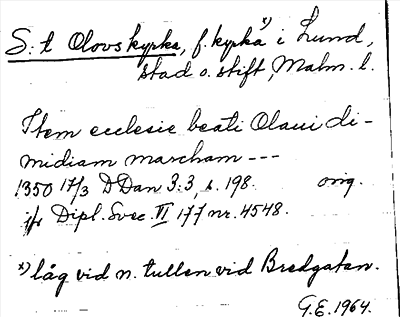 S:t Olovs kyrka, f. kyrka x) i Lund,
stad o. stift, Malm. l.
Item ecclesie beati Olaui di-
midiam marcham ---
1350 17/3 DDan 3:3, s. 198. orig.
jfr Dipl. Svec. VI 177 nr. 4548.
x) låg vid n. tullen vid Bredgatan.
G.E. 1964.